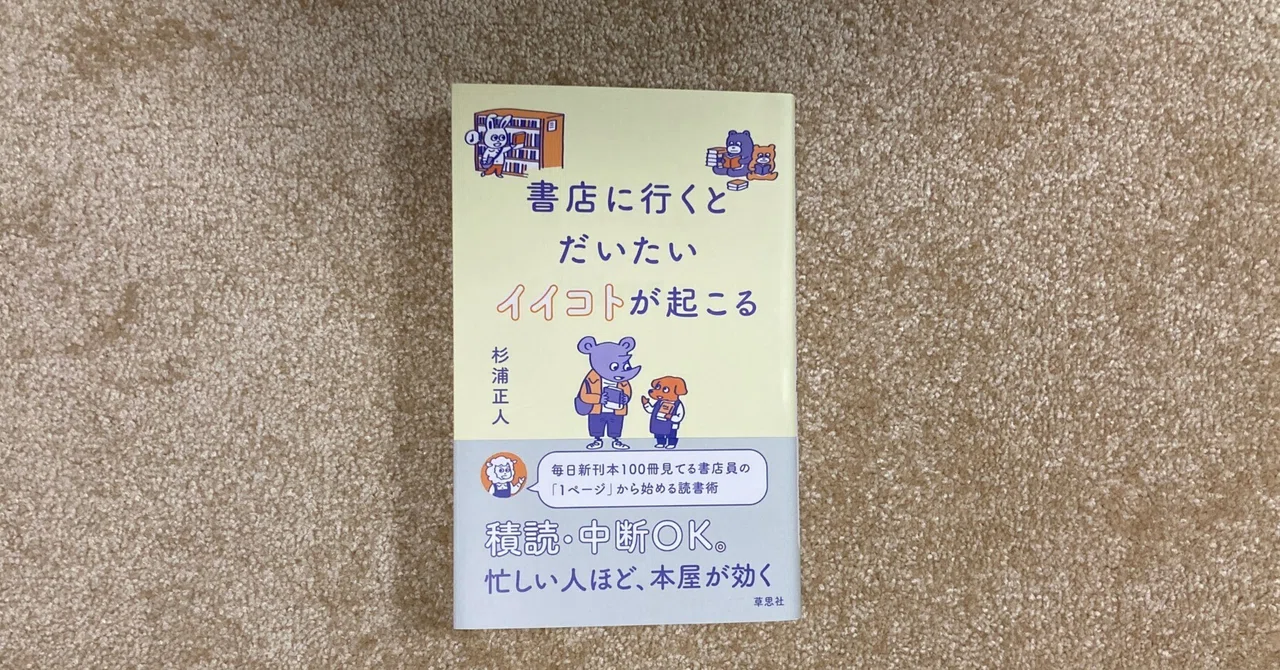 書店に行くと
だいたい
イイコトが起こる
杉浦正人
毎日新刊本100冊見てる書店員の
「1ページ」から始める読書術
積読・中断OK。
忙しい人ほど、本屋が効く
草思社